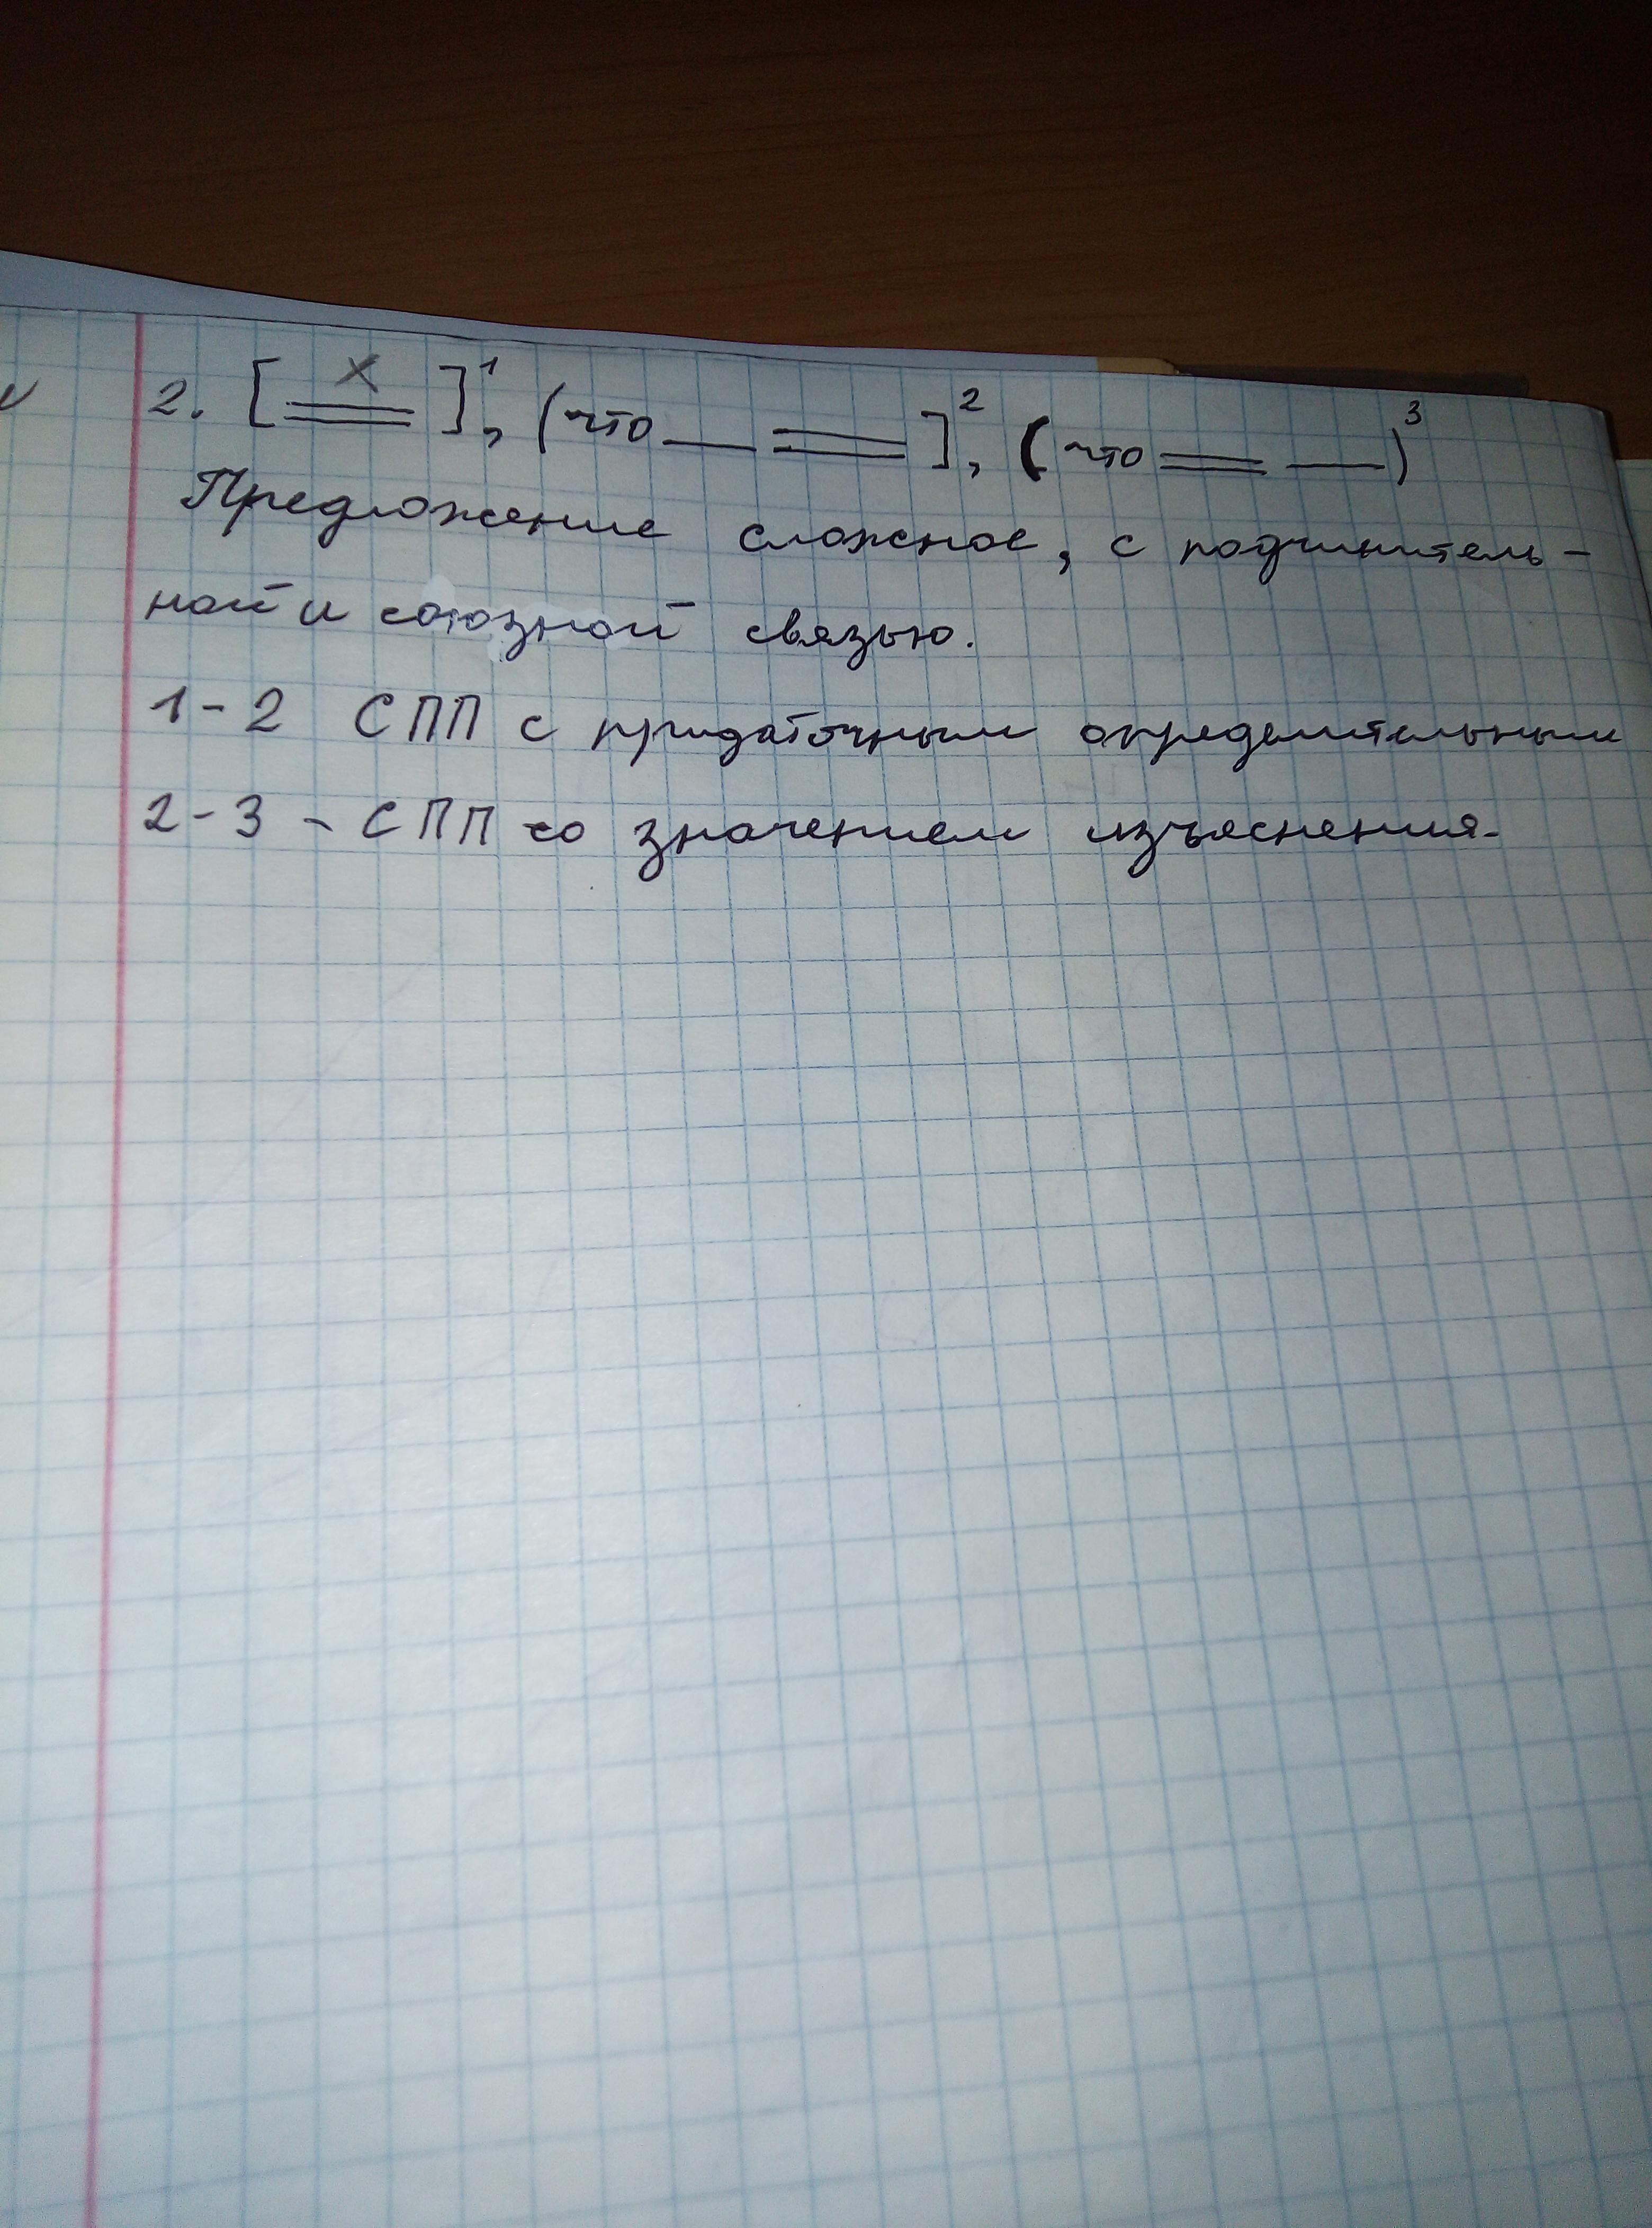 2. [ х ]¹, (что ]², (что )³
Предложение сложное, с подчинитель-
ной и союзной связью.
1-2 СПП с придаточным определительным
2-3 - СПП со значением изъяснения.